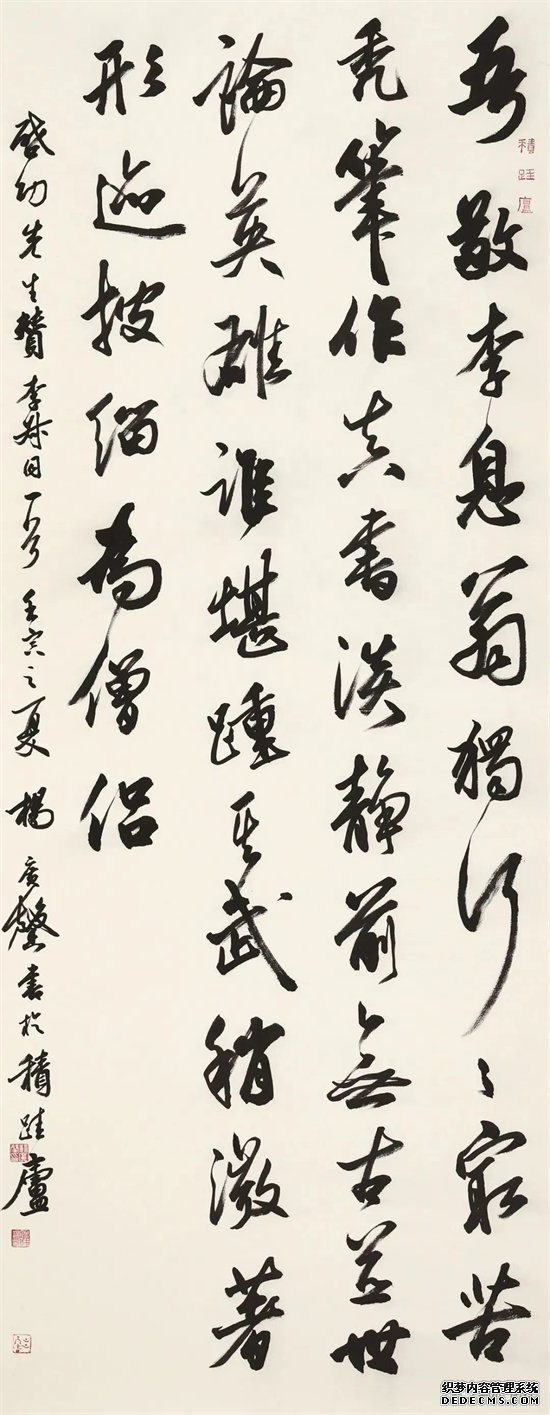 吾敬李息翁獨行行最苦
禿筆作真書淡靜前無古並世
論英雄誰堪踵其武稍微著
形迹披緇為僧侶
啟功先生贊李叔同一首 壬寅之夏 楊廣馨書於積跬廬
積跬廬
织梦内容管理系统
DEDECMS.COM